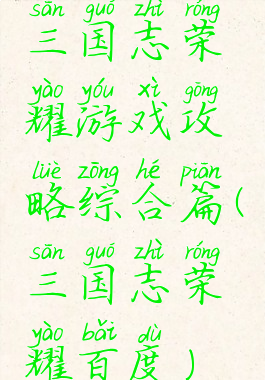 sān guó zhì róng
三国志荣
yào yóu xì gōng
耀游戏攻
lüè zōng hé piān
略综合篇(
sān guó zhì róng
三国志荣
yào bǎi dù
耀百度)